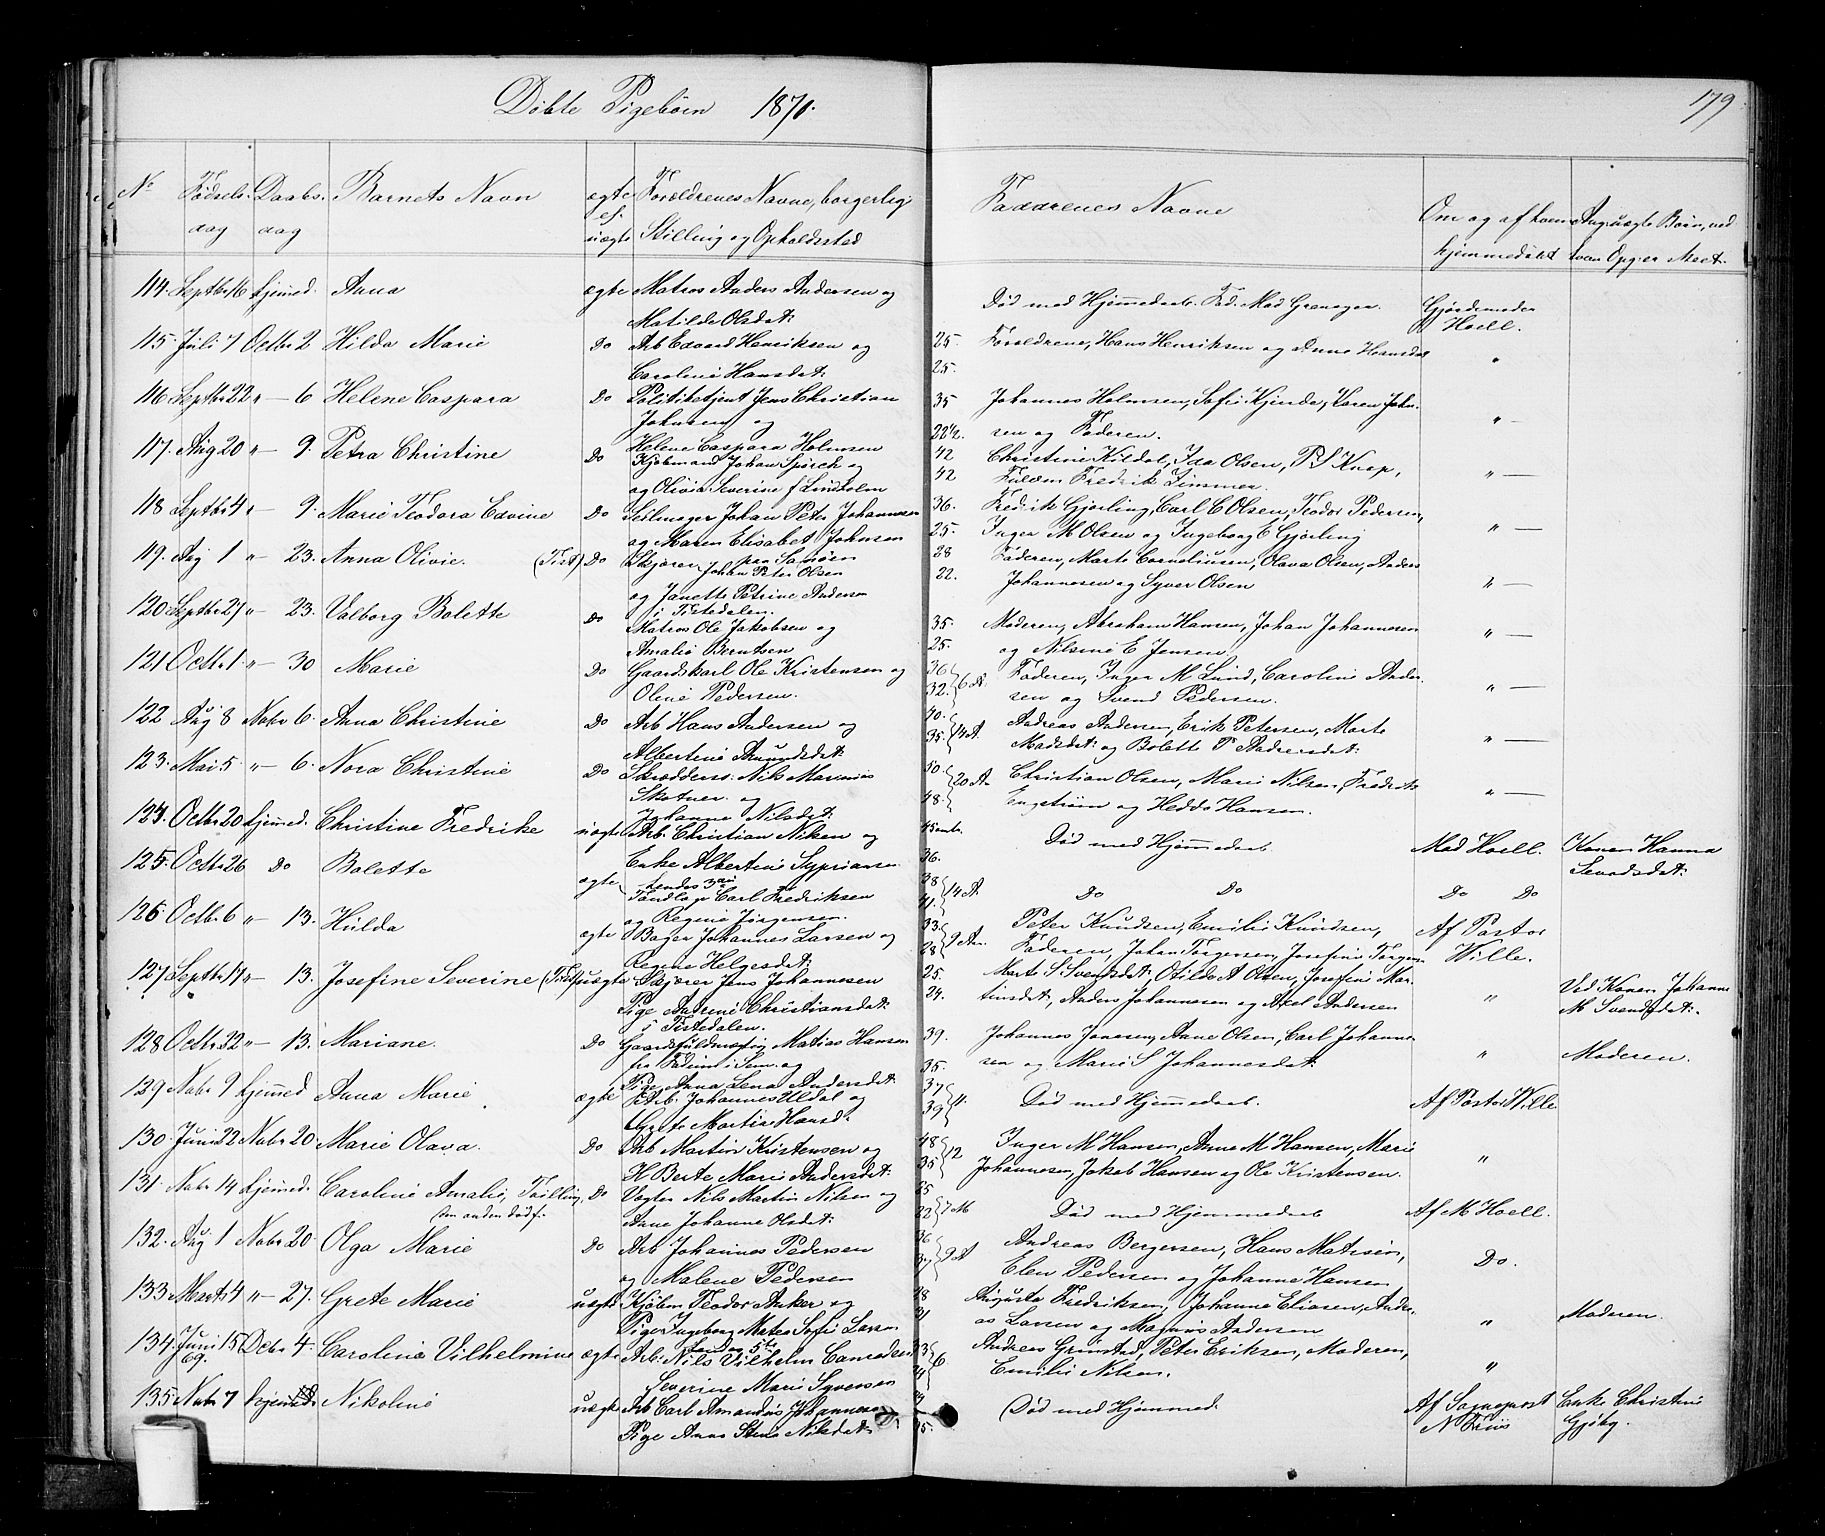 Døbte Pigebørn 1870.
179
No Fødsels- Daabs- Barnets Navn ægte Forældrenes Navne, borgerlig Faddrenes Navne Om og af hvem Ang: uægte Børn, ved
dag dag ej. uægte Stilling og Opholdssted hjemmedøbt hvem Opg: er
114. Septbr 16 hjemmed. Anna ægte Matros Anders Andersen og Død med Hjemmedaab. Gjordemoder
Matilde Olsdat: Hoell.
115. Juli 7 Octbr 2 Hilda Marie Do Arb Edvard Henriksen og 25. Forældrene, Hans Henriksen og Anne Hansdat "
Caroline Hansdat: 25.
116 Septbr 22 " — 6 Helene Caspara Do Politibetjent Jens Christian 35 Johannes Holmsen, Sofie Kjinde, Karen John- "
Johnsen og 22 1/2. sen og Faderen.
Helene Caspara Holmsen
117. Aug 20 " — 9. Petra Christine Do Kjøbmand Johan Spørck og 42 Christine Kildal, Ida Olsen, P S Knap, " —
og Olivia Severine f Lindholm 42 Fuldm Fredrik Zimmer.
118 Septbr 4 " — 9. Marie Teodora Edvine Do Seilmager Johan Peter Johannesen 36. Fredrik Gjørling, Carl C Olsen, Teodor Pedersen,
og Maren Elisabet Johnsen 25. Inger M Olsen og Ingeborg E Gjørling " —
paa Sanøen
119. Aug 1 " — 23. Anna Olivie. (Tist) Do Skjærer Johan Peter Olsen 28 Faderen, Marte Corneliussen, Olava Olsen, Anders
og Janette Petrine Anders 22. Johannesen og Syver Olsen " —
i Tistedalen.
120. Septbr 27 " — 23. Valborg Bolette Do Matros Ole Jakobsen og 35. Moderen, Abraham Hansen, Johan Johannesen
Amalie Berntsen 25. og Nilsine E Jensen. " —
121 Octbr 1 " — 30 Marie Do Gaardskarl Ole Kristensen og 36 Faderen, Inger M Lund, Caroline Ander-
Oline Pedersen. 32. 6 A. sen og Svend Pedersen. " —
122 Aug 8 Novbr 6. Anna Christine Do Arb Hans Andersen og 40. Andreas Andersen, Erik Petersen, Marte
Albertine Amundsdat 35. 14 A. Madsdat: og Bolette P Andersdat: " —
123. Mai 5 " — 6. Nora Christine Do Skræddersv: Nils Marinius 50 Christian Olsen, Marie Nilsen, Fredrik
Skotner og 48. 20 A. Engstrøm og Hedda Hansen. " —
Johanne Nilsdat:
124. Octbr 20 hjemmed. Christine Fredrike uægte Arb. Christian Nilsen og Død med Hjemmedaab Mad Hoell. Konen Hanna
Enke Albertine Sypriansen 36. Sevadsdat:
hendes 3die
125. Octbr 26 Do Bolette ægte Tandlæge Carl Fredriksen 38 14 A. Do Do Do Do
og Regine Jørgensen. 41.
126 Octbr 6 " — 13. Hulda ægte Bager Johannes Larsen og 33. Peter Knudsen, Emilie Knudsen, Af Pastor
Regine Helgesdat: 28 9 An. Faderen, Johan Jørgensen, Josefine Jørgen Wille.
127 Septbr 14 " — 13. Josefine Severine (Tist) uægte Skjærer Jens Johannesen 25. Marte S Svendsdat: Otilde A Olsen, Josefine Mar- Ved Konen Johanne
Pige Andrine Christiansdat: 24. tinsdat:, Anders Johannesen og Axel Andersen " M Svendsdat:.
i Tistedalen.
128 Octbr 22 " — 13. Mariane. Do Gaardsfuldmægtig Matias Hansen 39. Johannes Jonesen, Anne Olsen, Carl Johanne- " Moderen.
Pige Anna Lena Andersdat: 35. sen og Marie S Johannesdat:
129 Novbr 9 hjemmed Anna Marie ægte Arb. Johannes Uldal og 37 Død med Hjemmedaab. Af Pastor Wille
Grete Martin Hansd. 39 4.
130. Juni 22 Novbr 20. Marie Olava. Do Arb Martin Kristensen og 48 12 Inger M Hansen, Anne M Hansen, Marie
H Berte Marie Andersdat: 35 Johannesen, Jakob Hansen og Ole Kristensen. "
131. Novbr 14 hjemmed. Caroline Amalie, Tvilling, Do Vægter Nils Martin Nilsen og 25 Død med Hjemmedaab Af M Hoell.
den anden dødf. Anne Johanne Olsdat: 22 7 M
132. Aug 1 Novbr 20. Olga Marie Do Arb Johannes Pedersen 36 Andreas Bergersen, Hans Matisen,
og Malene Pedersen 37 9 A Elen Pedersen og Johanne Hansen Do.
133 Marts 4 " — 27. Grete Marie uægte Kjøbm Teodor Anker og 28 Augusta Fredriksen, Johanne Eliasen, Andre-
Pige Ingeborg Mates Sofie Larsen 31 as Larsen og Magnus Andersen " Moderen.
hendes 5te
134. Juni 15 69. Decbr 4. Caroline Vilhelmine ægte Arb: Nils Vilhelm Conradsen 35 6 Andreas Grimstad, Peter Eriksen, Moderen,
Severine Marie Syversen Emilie Nilsen. "
135 Novbr 7 hjemmed. Nikoline uægte Arb Carl Amandus Johannesen Død med Hjemmed. Af Sognepræst Enke Christine
Pige Anne Stene Nilsdat: 25. N Friis Gjøby.